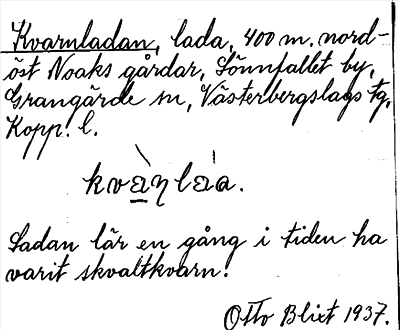 Kvarnladan, lada, 400 m. nord-
öst Noaks gårdar, Sönnfallet by,
Grangärde sn, Västerbergslags tg,
Kopp. l.
kvàṇlàˈa.
Ladan lär en gång i tiden ha
varit skvaltkvarn!
Otto Blixt 1937.